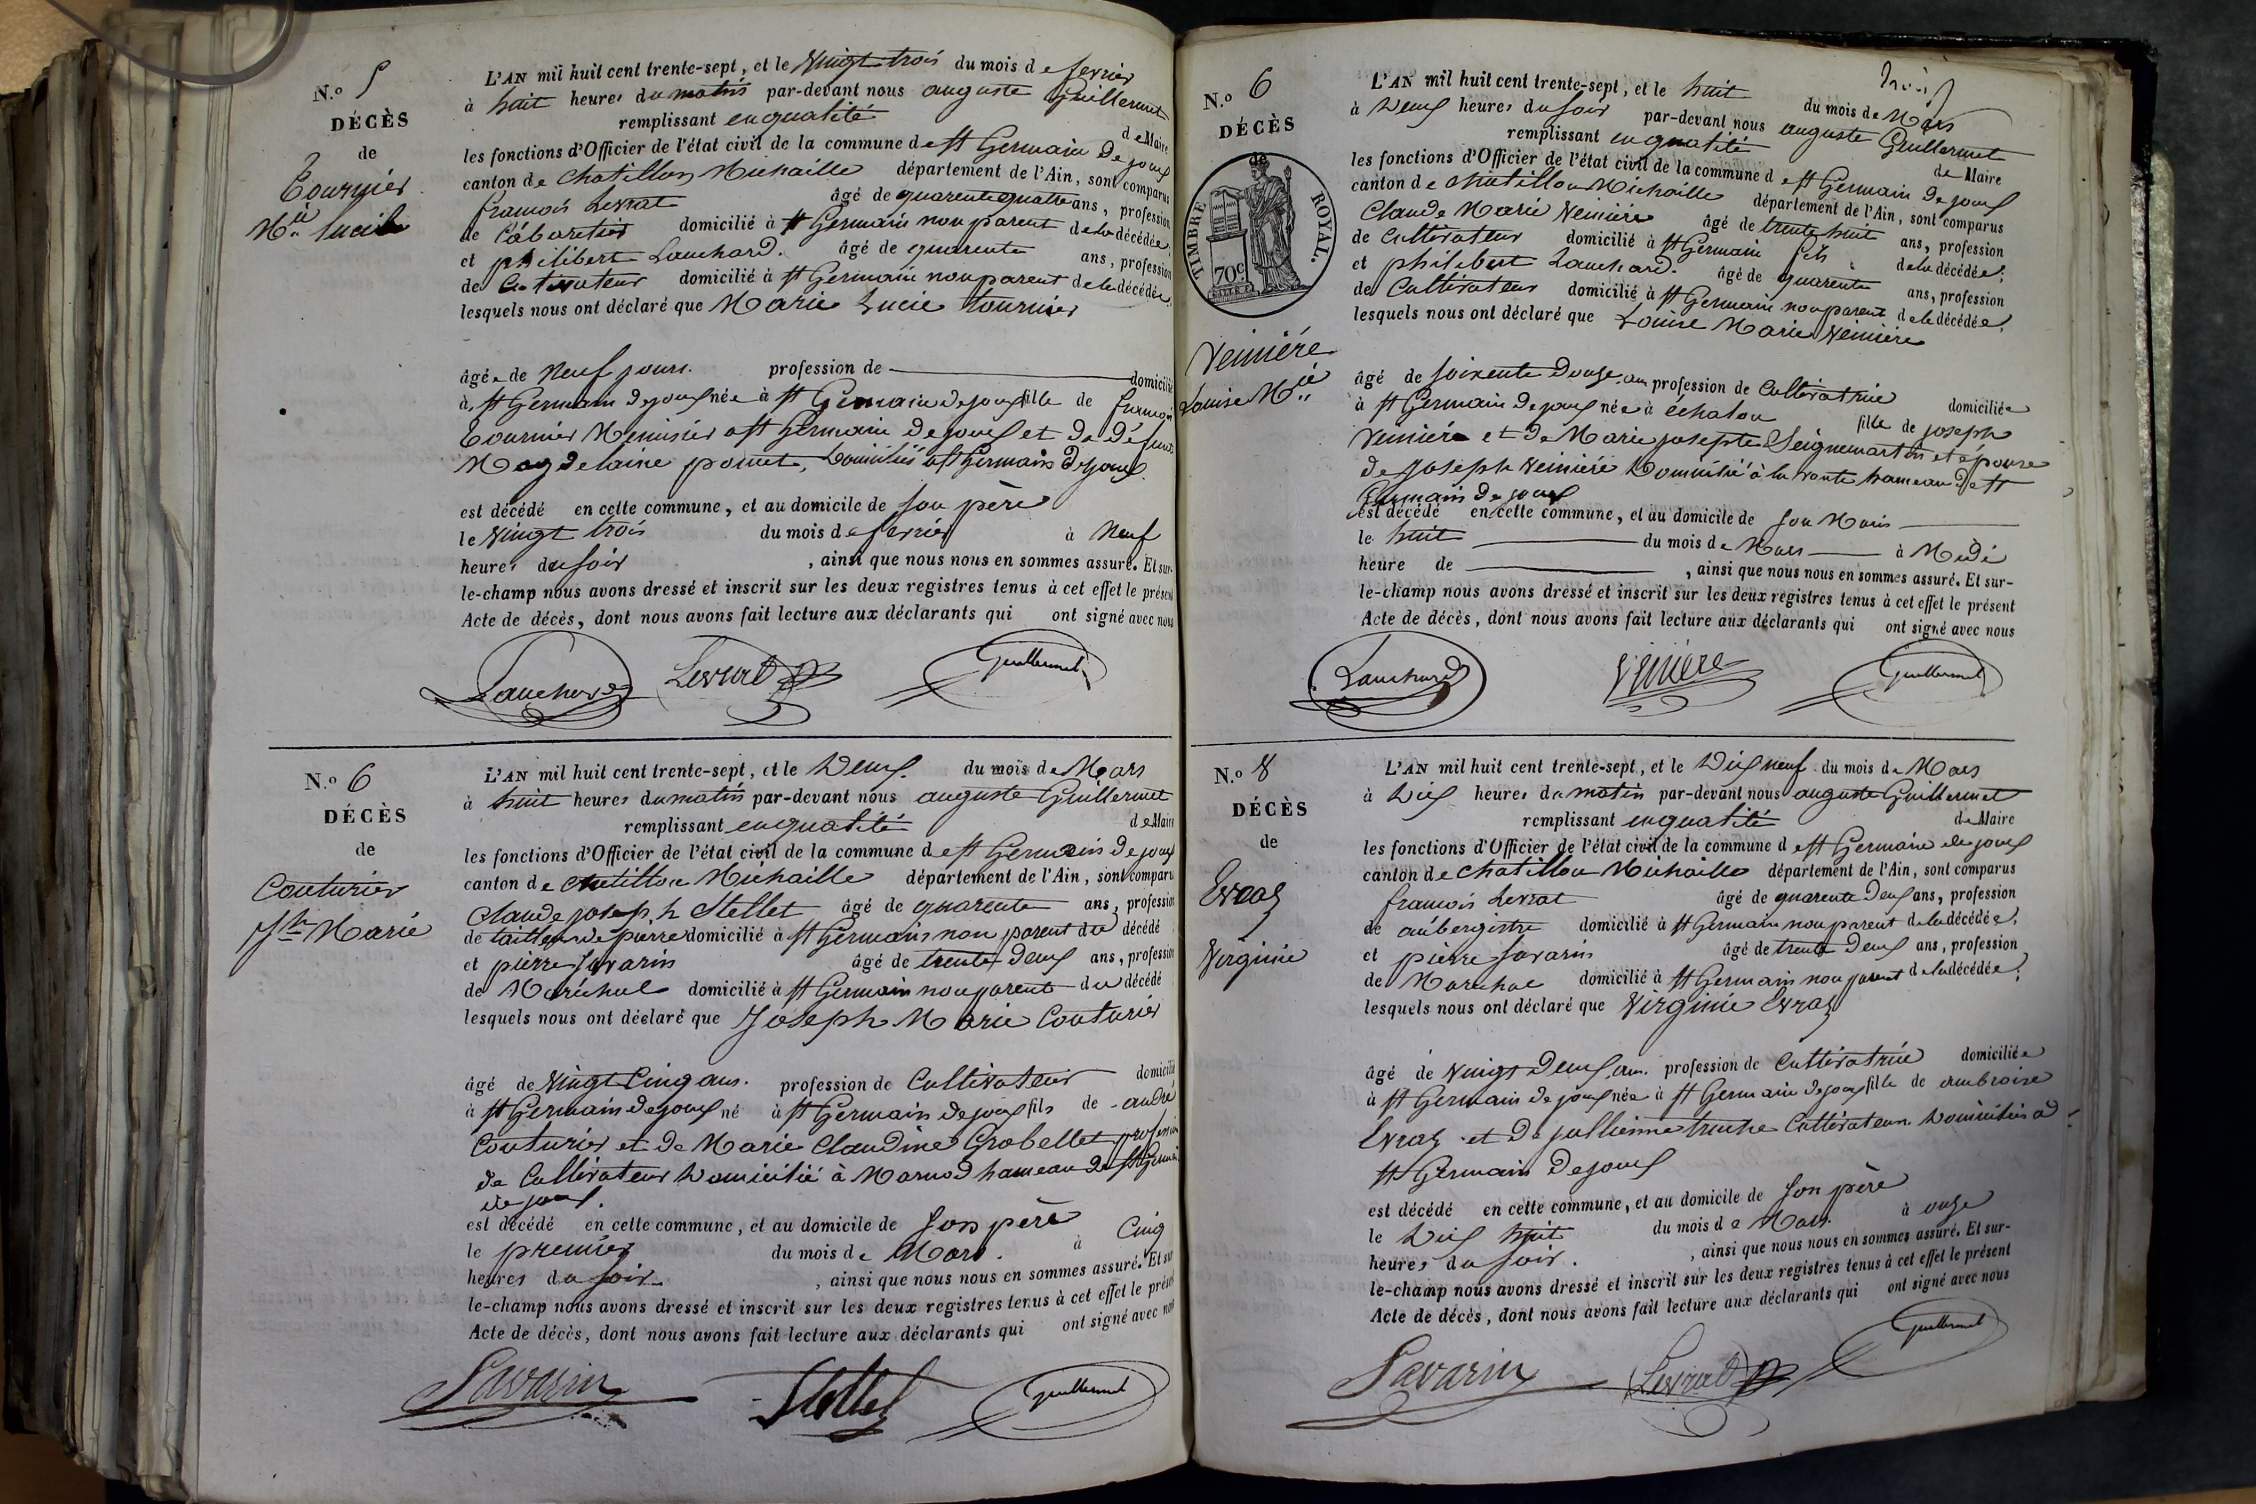 N.o 5
DÉCÈS
de
Tournier
M.ie Lucie
L'AN mil huit cent trente-sept, et le vingt trois du mois de fevrier
à huit heures du matin par-devant nous auguste Guillermet
remplissant en qualité de Maire
les fonctions d'Officier de l'état civil de la commune de St Germain De joux
canton de Chatillon Michaille département de l'Ain, sont comparus
francois Levrat âgé de quarente quatre ans, profession
de Cabaretier domicilié à St Germain non parent de la décédée,
et philibert Lauchard. âgé de quarente ans, profession
de Cultivateur domicilié à St Germain non parent de la décédée,
lesquels nous ont déclaré que Marie Lucie tournier
âgée de Neuf jours. profession de domicilié
à St Germain De joux née à St Germain De joux fille de francois
Tournier Menuisier a St Germain De joux et De Défunte
Magdelaine ponnet, Domiciliés a St Germain De joux.
est décédé en cette commune, et au domicile de son père
le vingt trois du mois de fevrier à Neuf
heures du soir, ainsi que nous nous en sommes assuré. Et sur-
le-champ nous avons dressé et inscrit sur les deux registres tenus à cet effet le présent
Acte de décès, dont nous avons fait lecture aux déclarants qui ont signé avec nous
Lauchard Levrat Guillermet
N.o 6
DÉCÈS
de
Couturier
Jh Marie
L'AN mil huit cent trente-sept, et le Deux du mois de Mars
à huit heures du matin par-devant nous auguste Guillermet
remplissant en qualité de Maire
les fonctions d'Officier de l'état civil de la commune de St Germain De joux
canton de Chatillon Michaille département de l'Ain, sont comparu
Claude joseph Stellet âgé de quarente ans, profession
de tailleur de pierre domicilié à St Germain non parent du décédé
et pierre Savarin âgé de trente Deux ans, profession
de Maréchal domicilié à St Germain non parent du décédé
lesquels nous ont déclaré que Joseph Marie Couturier
âgé de vingt Cinq ans. profession de Cultivateur domicilié
à St Germain De joux né à St Germain De joux fils de andré
Couturier et De Marie Claudine Grobellet profession
de Cultivateur Domicilié à Marnod hameau De St Germain
de joux.
est décédé en cette commune, et au domicile de son père
le premier du mois de Mars. à Cinq
heures du soir, ainsi que nous nous en sommes assuré. Et sur
le-champ nous avons dressé et inscrit sur les deux registres tenus à cet effet le présent
Acte de décès, dont nous avons fait lecture aux déclarants qui ont signé avec nous
Savarin Stellet Guillermet
trois
N.o 6
DÉCÈS
de
TIMBRE ROYAL.
70c
Veinière
Louise M.ie
L'AN mil huit cent trente-sept, et le huit du mois de Mars
à Deux heures du soir par-devant nous auguste Guillermet
remplissant en qualité de Maire
les fonctions d'Officier de l'état civil de la commune de St Germain De joux
canton de Chatillon Michaille département de l'Ain, sont comparus
Claude Marie Veinière âgé de trente huit ans, profession
de Cultivateur domicilié à St Germain fils de la décédée,
et philibert Lauchard. âgé de quarente ans, profession
de Cultivateur domicilié à St Germain non parent de la décédée,
lesquels nous ont déclaré que Louise Marie Veinière
âgé de soixente Douze ans profession de Cultivatrice domiciliée
à St Germain De joux née à échalon fille de joseph
Veinière et De Marie josepte Seignemartin et épouse
de Joseph Veinière Domicilié à la voute hameau De St
Germain De joux
est décédé en cette commune, et au domicile de son Maris
le huit du mois de Mars à Midi
heure de, ainsi que nous nous en sommes assuré. Et sur-
le-champ nous avons dressé et inscrit sur les deux registres tenus à cet effet le présent
Acte de décès, dont nous avons fait lecture aux déclarants qui ont signé avec nous
Lauchard Vinière Guillermet
N.o 8
DÉCÈS
de
Evraz
Virginie
L'AN mil huit cent trente-sept, et le Dix neuf du mois de Mars
à Dix heures du matin par-devant nous auguste Guillermet
remplissant en qualité de Maire
les fonctions d'Officier de l'état civil de la commune de St Germain de joux
canton de Chatillon Michaille département de l'Ain, sont comparus
francois Levrat âgé de quarente Deux ans, profession
de aubergiste domicilié à St Germain non parent de la décédée,
et pierre Savarin âgé de trente Deux ans, profession
de Marechal domicilié à St Germain non parent de la décédée,
lesquels nous ont déclaré que Virginie Evraz
âgé de vingt Deux ans. profession de Cultivatrice domiciliée
à St Germain De joux née à St Germain De joux fille de ambroise
Evraz et De jullienne truche Cultivateurs Domiciliés à
St Germain De joux
est décédé en cette commune, et au domicile de son père
le Dix huit du mois de Mars. à onze
heures du soir., ainsi que nous nous en sommes assuré. Et sur-
le-champ nous avons dressé et inscrit sur les deux registres tenus à cet effet le présent
Acte de décès, dont nous avons fait lecture aux déclarants qui ont signé avec nous
Savarin Levrat Guillermet